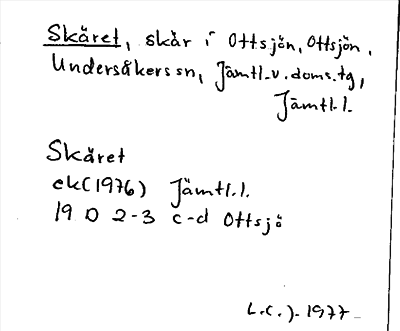 Skäret, skär i Ottsjön, Ottsjön,
Undersåkers sn, Jämtl.v.doms.tg,
Jämtl.l.
Skäret
ek(1976) Jämtl.l.
19 D 2-3 c-d Ottsjö
L.C.J. 1977